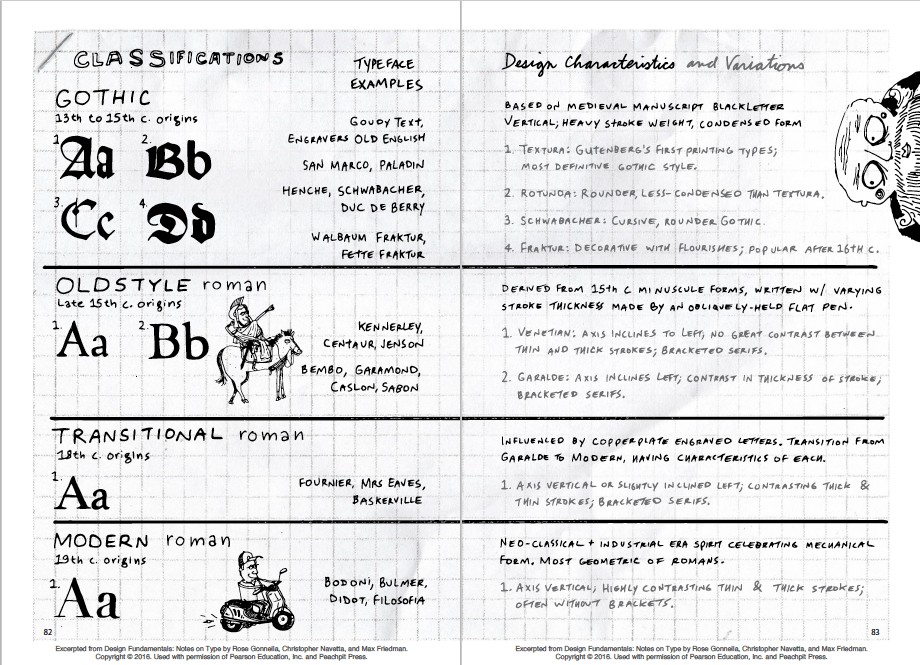 CLASSIFICATIONS
TYPEFACE
EXAMPLES
GOTHIC
13th to 15th c. origins
1. Aa 2. Bb
3. Cc 4. Dd
GOUDY TEXT,
ENGRAVERS OLD ENGLISH
SAN MARCO, PALADIN
HENCHE, SCHWABACHER,
DUC DE BERRY
WALBAUM FRAKTUR,
FETTE FRAKTUR
OLDSTYLE roman
Late 15th c. origins
1. Aa 2. Bb
KENNERLEY,
CENTAUR, JENSON
BEMBO, GARAMOND,
CASLON, SABON
TRANSITIONAL roman
18th c. origins
1. Aa
FOURNIER, MRS EAVES,
BASKERVILLE
MODERN roman
19th c. origins
1. Aa
BODONI, BULMER,
DIDOT, FILOSOFIA
82
Excerpted from Design Fundamentals: Notes on Type by Rose Gonnella, Christopher Navetta, and Max Friedman.
Copyright © 2016. Used with permission of Pearson Education, Inc. and Peachpit Press.
Design Characteristics and Variations
BASED ON MEDIEVAL MANUSCRIPT BLACKLETTER
VERTICAL; HEAVY STROKE WEIGHT, CONDENSED FORM
1. TEXTURA: GUTENBERG'S FIRST PRINTING TYPES;
MOST DEFINITIVE GOTHIC STYLE.
2. ROTUNDA: ROUNDER, LESS-CONDENSED THAN TEXTURA.
3. SCHWABACHER: CURSIVE, ROUNDER GOTHIC.
4. FRAKTUR: DECORATIVE WITH FLOURISHES; POPULAR AFTER 16TH C.
DERIVED FROM 15TH C MINUSCULE FORMS, WRITTEN W/ VARYING
STROKE THICKNESS MADE BY AN OBLIQUELY-HELD FLAT PEN.
1. VENETIAN: AXIS INCLINES TO LEFT, NO GREAT CONTRAST BETWEEN
THIN AND THICK STROKES; BRACKETED SERIFS.
2. GARALDE: AXIS INCLINES LEFT; CONTRAST IN THICKNESS OF STROKE;
BRACKETED SERIFS.
INFLUENCED BY COPPERPLATE ENGRAVED LETTERS. TRANSITION FROM
GARALDE TO MODERN, HAVING CHARACTERISTICS OF EACH.
1. AXIS VERTICAL OR SLIGHTLY INCLINED LEFT; CONTRASTING THICK &
THIN STROKES; BRACKETED SERIFS.
NEO-CLASSICAL + INDUSTRIAL ERA SPIRIT CELEBRATING MECHANICAL
FORM. MOST GEOMETRIC OF ROMANS.
1. AXIS VERTICAL; HIGHLY CONTRASTING THIN & THICK STROKES;
OFTEN WITHOUT BRACKETS.
83
Excerpted from Design Fundamentals: Notes on Type by Rose Gonnella, Christopher Navetta, and Max Friedman.
Copyright © 2016. Used with permission of Pearson Education, Inc. and Peachpit Press.